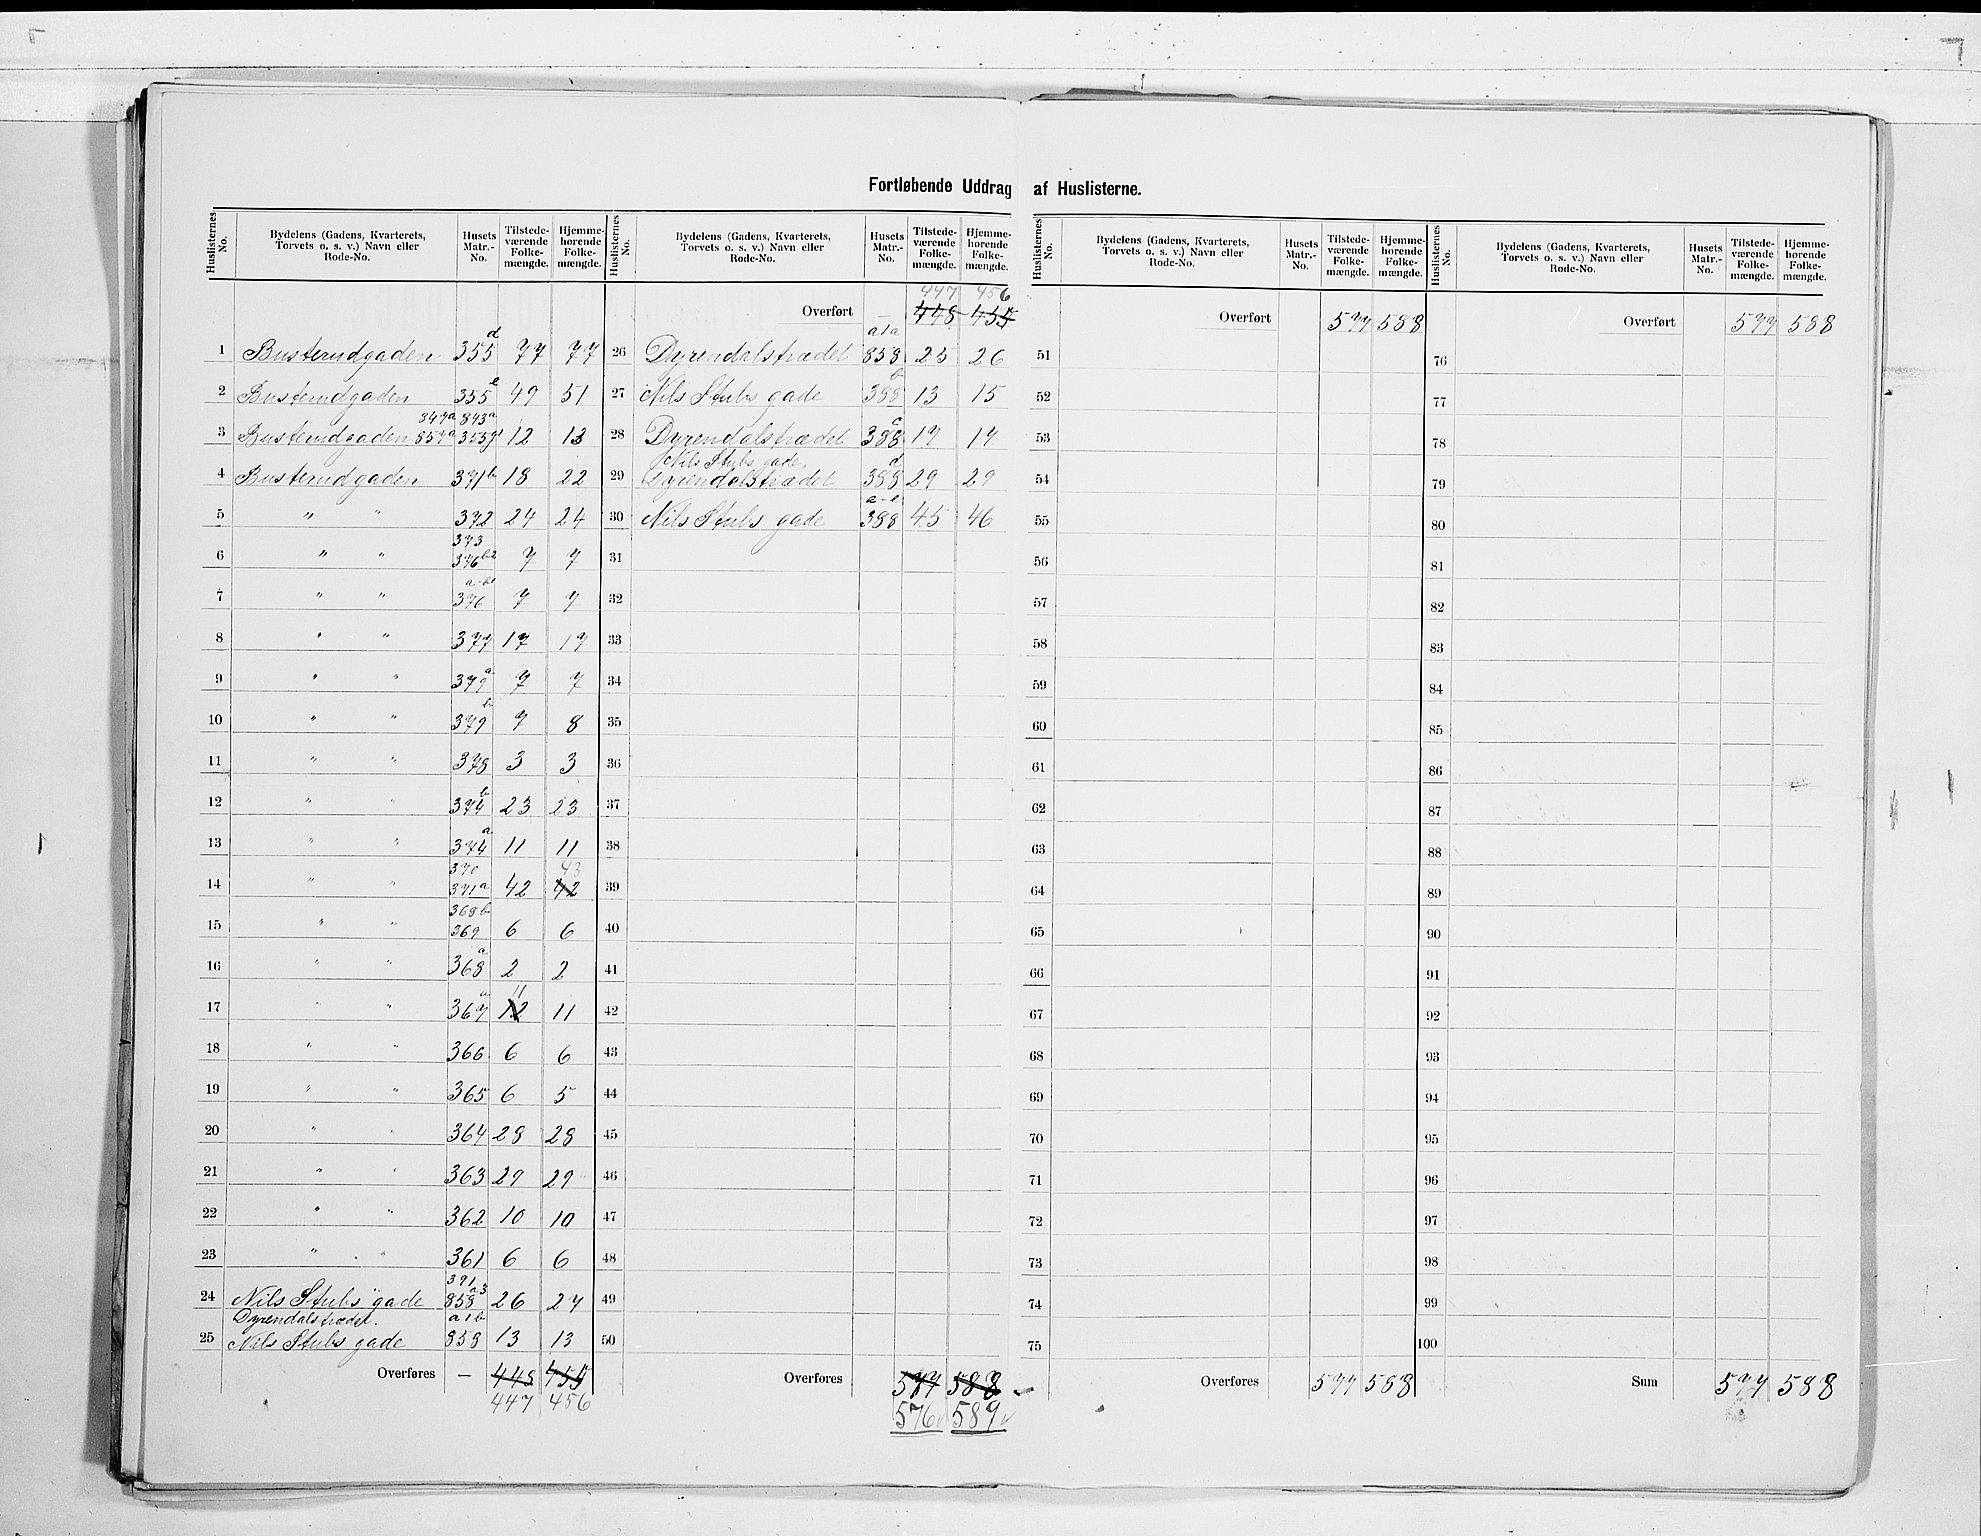 Fortløbende Uddrag af Huslisterne.
Huslisternes No. | Bydelens (Gadens, Kvarterets, Torvets o. s. v.) Navn eller Rode-No. | Husets Matr.-No. | Tilstedeværende Folkemængde. | Hjemmehørende Folkemængde.
1 Busterudgaden 355d 77 77
2 Busterudgaden 355e 49 51
347a 843a
3 Busterudgaden 857a 12 13
4 Busterudgaden 371b 18 22
5 " " 372 24 24
373
6 " " 376b2 7 7
a-b1
7 " " 376 7 7
8 " " 377 17 17
9 " " 379a 7 7
10 " " 379b 7 8
11 " " 378 3 3
12 " " 374b 23 23
13 " " 374a 11 11
370 43
14 " " 371a 42 42
368b
15 " " 369 6 6
16 " " 368a 2 2
11
17 " " 367a 12 11
18 " " 366 6 6
19 " " 365 6 5
20 " " 364 28 28
21 " " 363 29 29
22 " " 362 10 10
23 " " 361 6 6
391
24 Nils Stubs gade 858a3 26 27
Dyrendalstrædet. a1b
25 Nils Stubs gade 858 13 13
Overføres — 448 455
447 456
Huslisternes No. | Bydelens (Gadens, Kvarterets, Torvets o. s. v.) Navn eller Rode-No. | Husets Matr.-No. | Tilstedeværende Folkemængde. | Hjemmehørende Folkemængde.
447 456
Overført — 448 455
a1a
26 Dyrendalstrædet 858 25 26
27 Nils Stubs gade 388b 13 15
28 Dyrendalstrædet 388c 17 17
Nils Stubs gade,
29 Dyrendalstrædet 388d 29 29
a-e
30 Nils Stubs gade 388 45 46
31
32
33
34
35
36
37
38
39
40
41
42
43
44
45
46
47
48
49
50
Overføres 577 588
576 589
Huslisternes No. | Bydelens (Gadens, Kvarterets, Torvets o. s. v.) Navn eller Rode-No. | Husets Matr.-No. | Tilstedeværende Folkemængde. | Hjemmehørende Folkemængde.
Overført 577 588
51
52
53
54
55
56
57
58
59
60
61
62
63
64
65
66
67
68
69
70
71
72
73
74
75
Overføres 577 588
Huslisternes No. | Bydelens (Gadens, Kvarterets, Torvets o. s. v.) Navn eller Rode-No. | Husets Matr.-No. | Tilstedeværende Folkemængde. | Hjemmehørende Folkemængde.
Overført 577 588
76
77
78
79
80
81
82
83
84
85
86
87
88
89
90
91
92
93
94
95
96
97
98
99
100
Sum 577 588